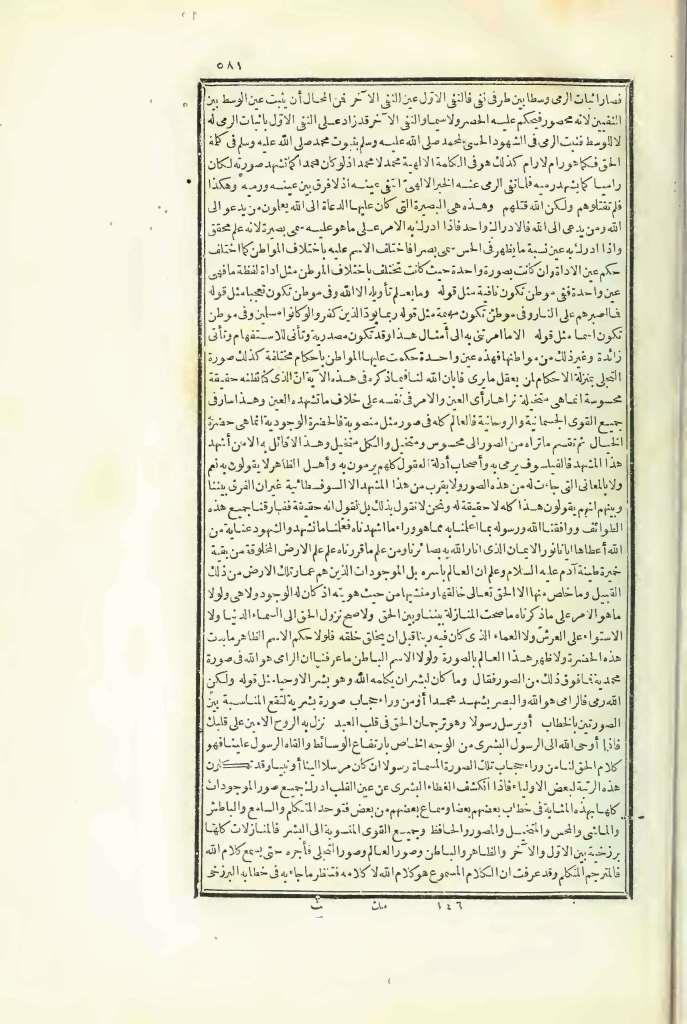 ٥٨١
فصار اثبات الرمى وسطا بين طرفى نفى فالنفى الاول عين النفى الآخر فمن المحال أن يثبت عين الوسط بين
النفيين لانه محصور فيحكم عليه الحصر ولا سيما والنفى الآخر قد زاد على النفى الاول باثبات الرمى له
لا للوسط فثبت الرمى فى الشهود الحسى لمحمد صلى الله عليه وسلم بثبوت محمد صلى الله عليه وسلم فى كلمة
الحق فكما هو رام لا رام كذلك هو فى الكلمة الالهية محمد لا محمد اذ لو كان محمدا كما تشهد صورته لكان
راميا كما يشهد رميه فلما نفى الرمى عنه الخبر الالهى انتفى عينه اذ لا فرق بين عينه ورميه وهكذا
فلم تقتلوهم ولكن الله قتلهم وهذه هى البصيرة التى كان عليها الدعاة الى الله يعلمون من يدعو الى
الله ومن يدعى الى الله فالادراك واحد فاذا ادرك به الامر على ما هو عليه سمى بصيرة لانه علم محقق
واذا ادرك به عين نسبة ما يظهر فى الحس سمى بصرا فاختلف الاسم عليه باختلاف الموطن كما اختلف
حكم عين الاداة وان كانت بصورة واحدة حيث كانت تختلف باختلاف الموطن مثل اداة لفظة ما فهى
عين واحدة ففى موطن تكون نافية مثل قوله وما يعلم تأويله الا الله وفى موطن تكون تعجبا مثل قوله
فما اصبرهم على النار وفى موطن تكون مهيئة مثل قوله ربما يود الذين كفروا لو كانوا مسلمين وفى موطن
تكون اسما مثل قوله الا ما امرتنى به الى أمثال هذا وقد تكون مصدرية وتأتى للاستفهام وتأتى
زائدة وغير ذلك من مواطنها فهذه عين واحدة حكمت عليها المواطن بأحكام مختلفة كذلك صورة
التجلى بمنزلة الاحكام لمن يعقل ما يرى فابان الله لنا فيما ذكره فى هذه الآية ان الذى كنا نظنه حقيقة
محسوسة انما هى متخيلة يراها رأى العين والامر فى نفسه على خلاف ما تشهده العين وهذا سار فى
جميع القوى الجسمانية والروحانية فالعالم كله فى صور مثل منصوبة فالحضرة الوجودية انما هى حضرة
الخيال ثم تقسم ما تراه من الصور الى محسوس ومتخيل والكل متخيل وهذا لا قائل به الا من أشهد
هذا المشهد فالفيلسوف يرمى به وأصحاب أدلة العقول كلهم يرمون به وأهل الظاهر لا يقولون به نعم
ولا بالمعانى التى جاءت له من هذه الصور ولا يقرب من هذا المشهد الا السوفسطائية غير ان الفرق بيننا
وبينهم انهم يقولون هذا كله لا حقيقة له ونحن لا نقول بذلك بل نقول انه حقيقة ففارقنا جميع هذه
الطوائف ووافقنا الله ورسوله بما اعلمنا به مما هو وراء ما اشهدناه فعلمنا ما نشهد والشهود عناية من
الله أعطاها ايانا نور الايمان الذى انار الله به بصائرنا ومن علم ما قررناه علم علم الارض المخلوقة من بقية
خميرة طينة آدم عليه السلام وعلم ان العالم بأسره بل الموجودات الذين هم عمار تلك الارض من ذلك
القبيل وما خلص منها الا الحق تعالى خالقها ومنشيها من حيث هويته اذ كان له الوجود ولا هى ولولا
ما هو الامر على ما ذكرناه ما صحت المنازلة بيننا وبين الحق ولا صح نزول الحق الى السماء الدنيا ولا
الاستواء على العرش ولا العماء الذى كان فيه ربنا قبل ان يخلق خلقه فلولا حكم الاسم الظاهر ما بدت
هذه الحضرة ولا ظهر هذا العالم بالصورة ولولا الاسم الباطن ما عرفنا ان الرامى هو الله فى صورة
محمدية فما فوق ذلك من الصور فقال وما كان لبشر ان يكلمه الله وهو بشر الا وحيا مثل قوله ولكن
الله رمى فالرامى هو الله والبصر يشهد محمدا أو من وراء حجاب صورة بشرية لتقع المناسبة بين
الصورتين بالخطاب أو يرسل رسولا وهو ترجمان الحق فى قلب العبد نزل به الروح الامين على قلبك
فاذا أوحى الله الى الرسول البشرى من الوجه الخاص بارتفاع الوسائط والقاه الرسول علينا فهو
كلام الحق لنا من وراء حجاب تلك الصورة المسماة رسولا ان كان مرسلا الينا أو نبيا وقد تكون
هذه الرتبة لبعض الاولياء فاذا انكشف الغطاء البشرى عن عين القلب ادرك جميع صور الموجودات
كلها بهذه المثابة فى خطاب بعضهم بعضا وسماع بعضهم من بعض فتوحد المتكلم والسامع والباطش
والماشى والمحس والمتخيل والمصور والحافظ وجميع القوى المنسوبة الى البشر فالمنازلات كلها
برزخية بين الاول والآخر والظاهر والباطن وصور العالم وصور التجلى فأجره حتى يسمع كلام الله
فالمترجم المتكلم وقد عرفت ان الكلام المسموع هو كلام الله لا كلامه فتنظر ما جاء به فى خطابه البرزخى
١٤٦